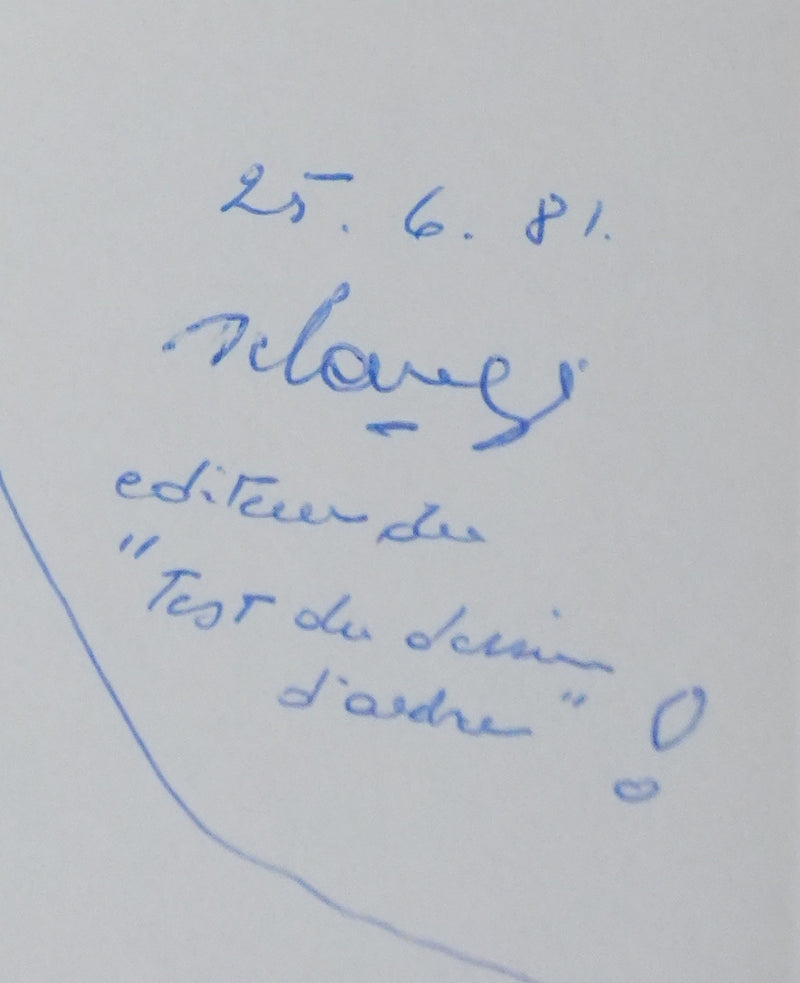 25. 6. 81.
editeur du
"Test du dessin
d'ardre" !